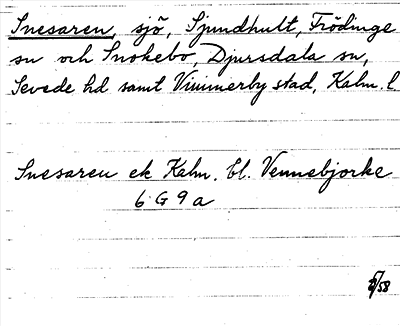 Snesaren, sjö, Sjundhult, Frödinge
sn och Snokebo, Djursdala sn,
Sevede hd samt Vimmerby stad, Kalm. l.
Snesaren ek Kalm. bl. Vennebjorke
6 G 9 a